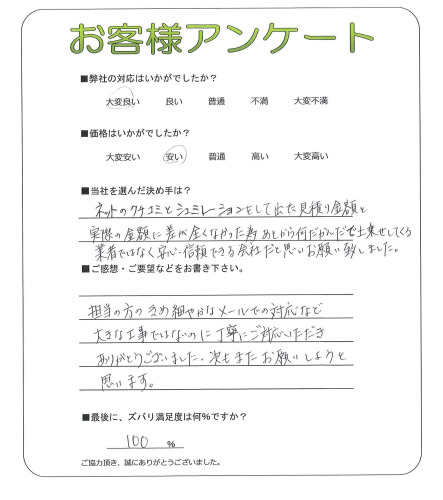 お客様アンケート
■弊社の対応はいかがでしたか？
大変良い 良い 普通 不満 大変不満
■価格はいかがでしたか？
大変安い 安い 普通 高い 大変高い
■当社を選んだ決め手は？
ネットのクチコミとシュミレーションをして出た見積り金額と
実際の金額に差が全くなかった為 あとから何だかんだで上乗せしてくる
業者ではなく安心・信頼できる会社だと思いお願い致しました。
■ご感想・ご要望などをお書き下さい。
担当の方のきめ細やかなメールでの対応など
大きな工事ではないのに丁寧にご対応いただき
ありがとうございました。次もまたお願いしようと
思います。
■最後に、ズバリ満足度は何％ですか？
100 ％
ご協力頂き、誠にありがとうございました。